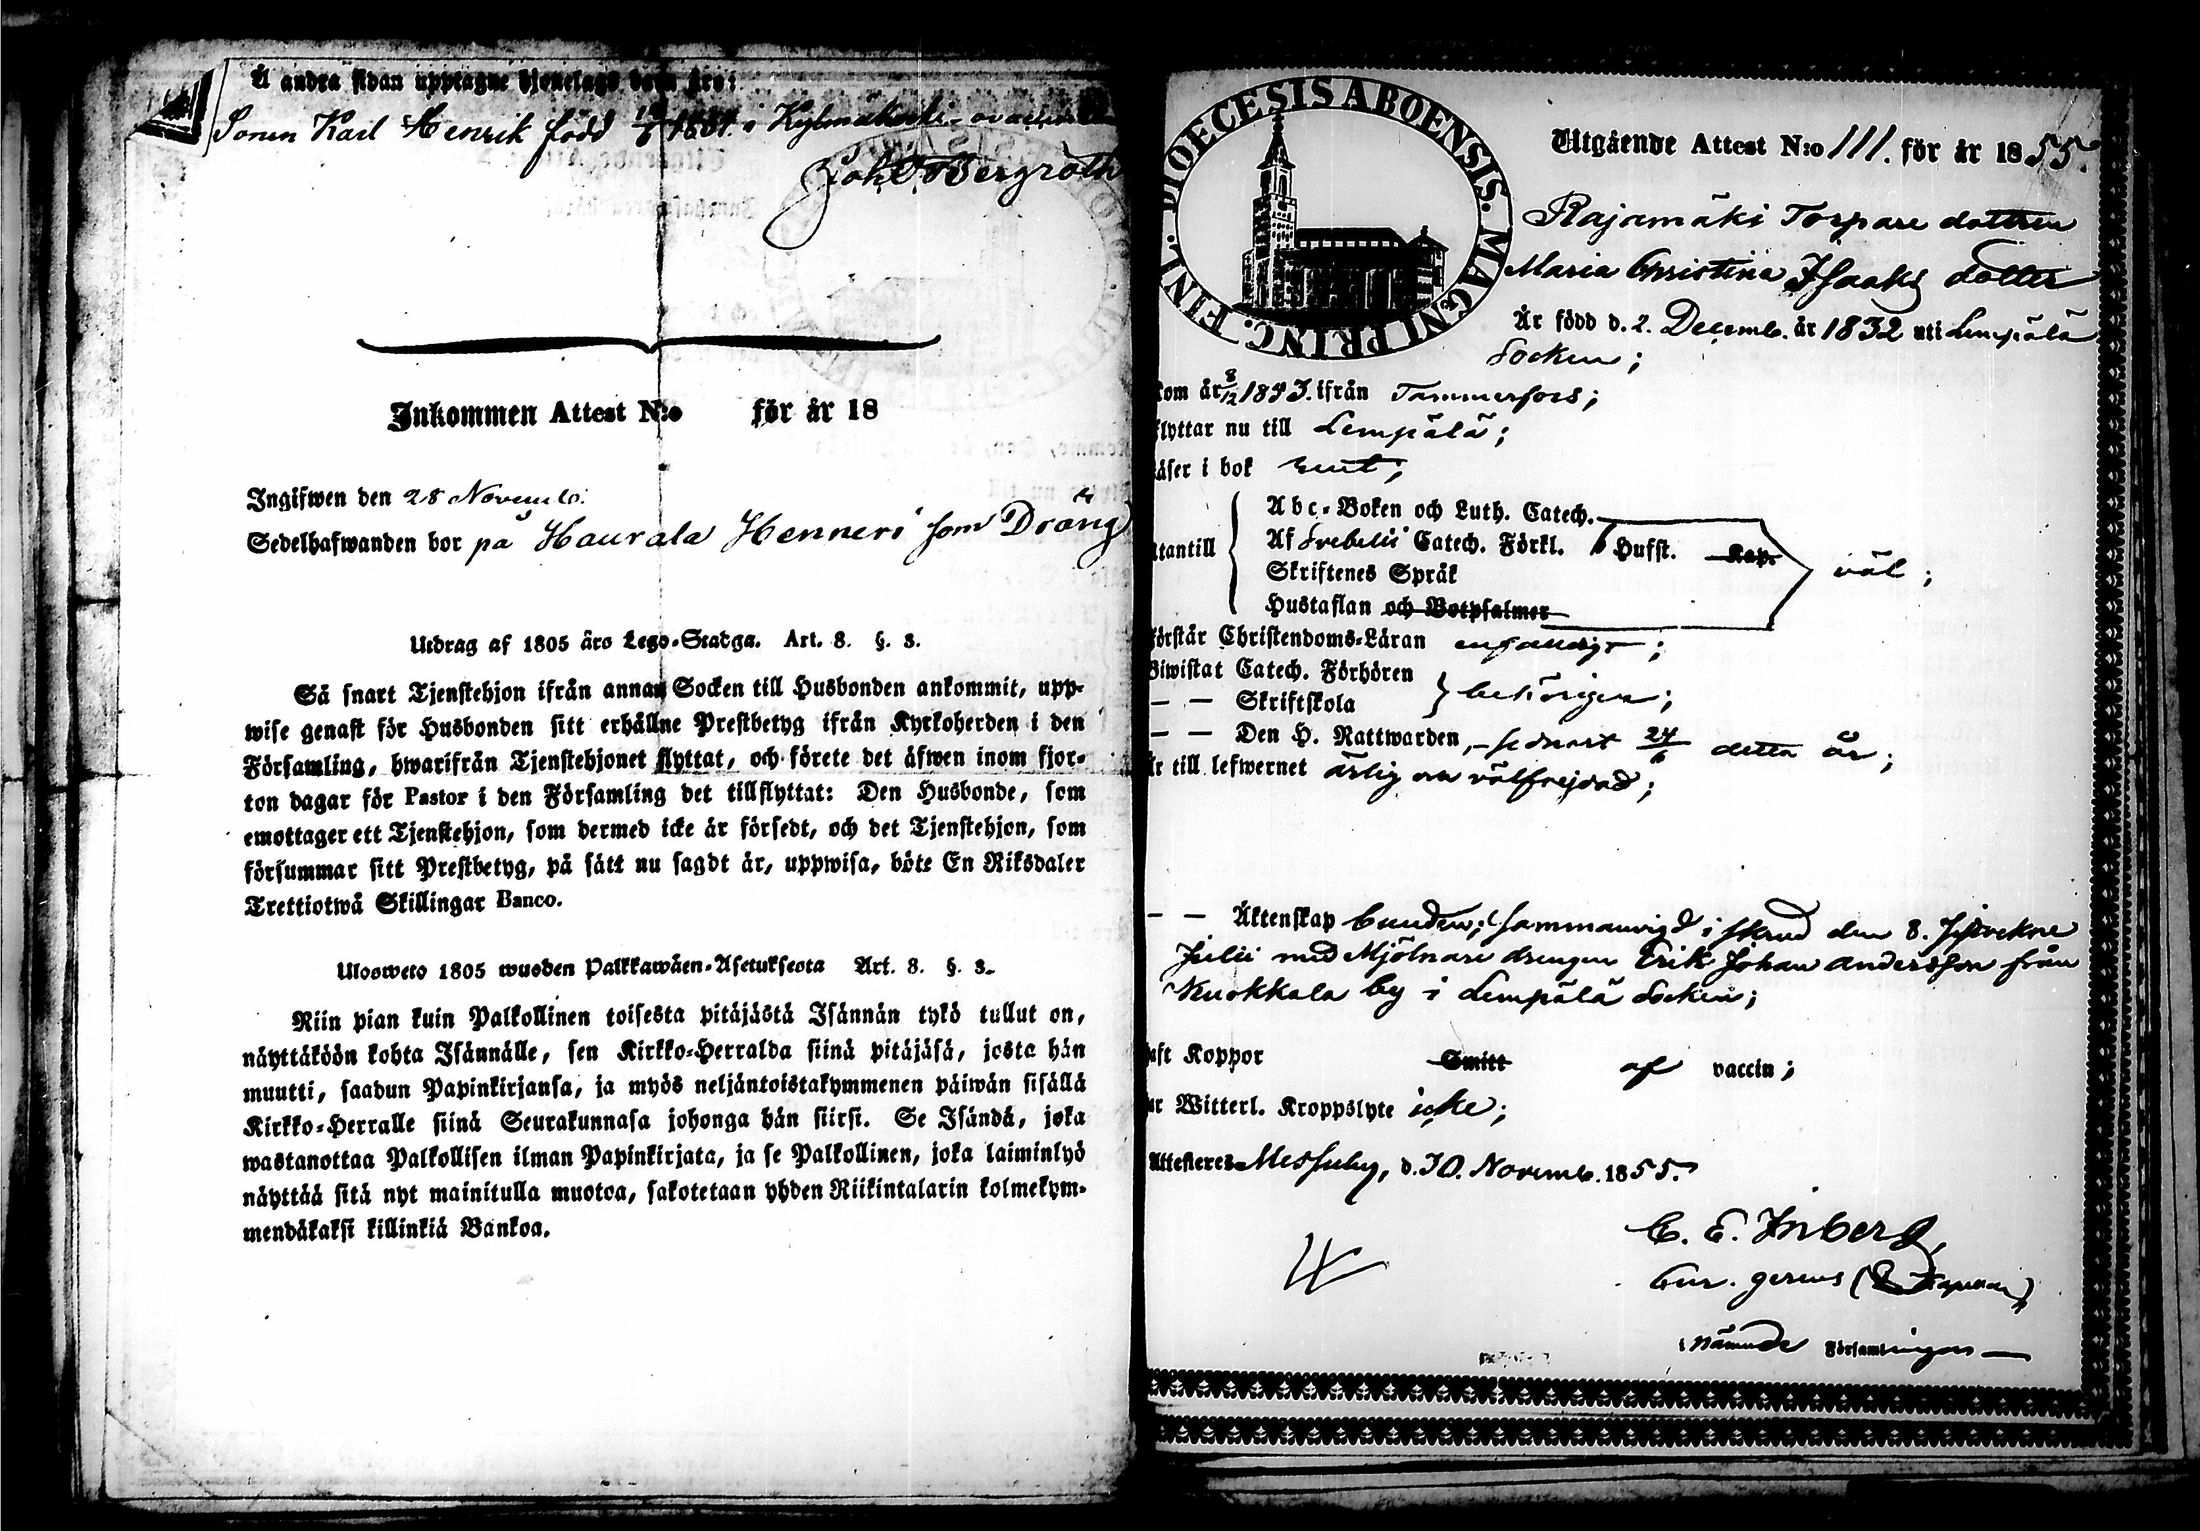 Å andra sidan upptagne tjenstehjons barn äro:
Sonen Karl Henrik född 1851. i Kylmäkoski
Joh. Bergroth
Inkommen Attest N:o för år 18
Ingifwen den 28 Novemb.
Sedelhafwanden bor på Haurala Henneri som Dräng
Utdrag af 1805 års Lego-Stadga. Art. 8. §. 3.
Så snart Tjenstehjon ifrån annan Socken till Husbonden ankommit, upp-
wise genast för Husbonden sitt erhållne Prestbetyg ifrån Kyrkoherden i den
Församling, hwarifrån Tjenstehjonet flyttat, och förete det äfwen inom fjor-
ton dagar för Pastor i den Församling det tillflyttat: Den Husbonde, som
emottager ett Tjenstehjon, som dermed icke är försedt, och det Tjenstehjon, som
försummar sitt Prestbetyg, på sätt nu sagdt är, uppwisa, böte En Riksdaler
Trettiotwå Skillingar Banco.
Ulosweto 1805 wuoden Palkkawäen-Asetuksesta Art. 8. §. 3.
Niin pian kuin Palkollinen toisesta pitäjästä Isännän tykö tullut on,
näyttäköön kohta Isännälle, sen Kirkko-Herralda siinä pitäjäsä, josta hän
muutti, saadun Papinkirjansa, ja myös neljäntoistakymmenen päiwän sisällä
Kirkko-Herralle siinä Seurakunnasa johonga hän siirsi. Se Isändä, joka
wastanottaa Palkollisen ilman Papinkirjata, ja se Palkollinen, joka laiminlyö
näyttää sitä nyt mainitulla muotoa, sakotetaan yhden Riikintalarin kolmekym-
mendäkaksi killinkiä Bankoa.
DIOECESIS ABOENSIS. MAGNI PRINC. FINL.
Utgående Attest N:o 111. för år 1855.
Rajamäki Torpare dottren
Maria Christina Isaaks dotter
Är född d. 2. Decemb. år 1832 uti Lempälä
Socken;
kom år 8/12 1843. ifrån Tammerfors;
flyttar nu till Lempälä;
läser i bok rent;
Abc-Boken och Luth. Catech.
utantill Af Svebelii Catech. Förkl. 6 Hufst. Kap. väl;
Skriftenes Språk
Hustaflan och Botpsalmer
förstår Christendoms-Läran enfaldigt;
Biwistat Catech. Förhören
— — Skriftskola behörigen;
— — Den H. Nattwarden, senast 24/6 detta år;
är till lefwernet ärlig och välfrejdad;
— — Äktenskap bunden; sammanvigd i Skrud den 8. sistvekne
Julii med Mjölnare drengen Erik Johan Andersson från
Kuokkala by i Lempälä Socken;
haft Koppor Smitt af vaccin;
har Witterl. Kroppslyte icke;
Attesteres Messuby, d. 30. Novemb. 1855.
C. E. Inberg,
Cur. gerens
i nämnde Församlingen —